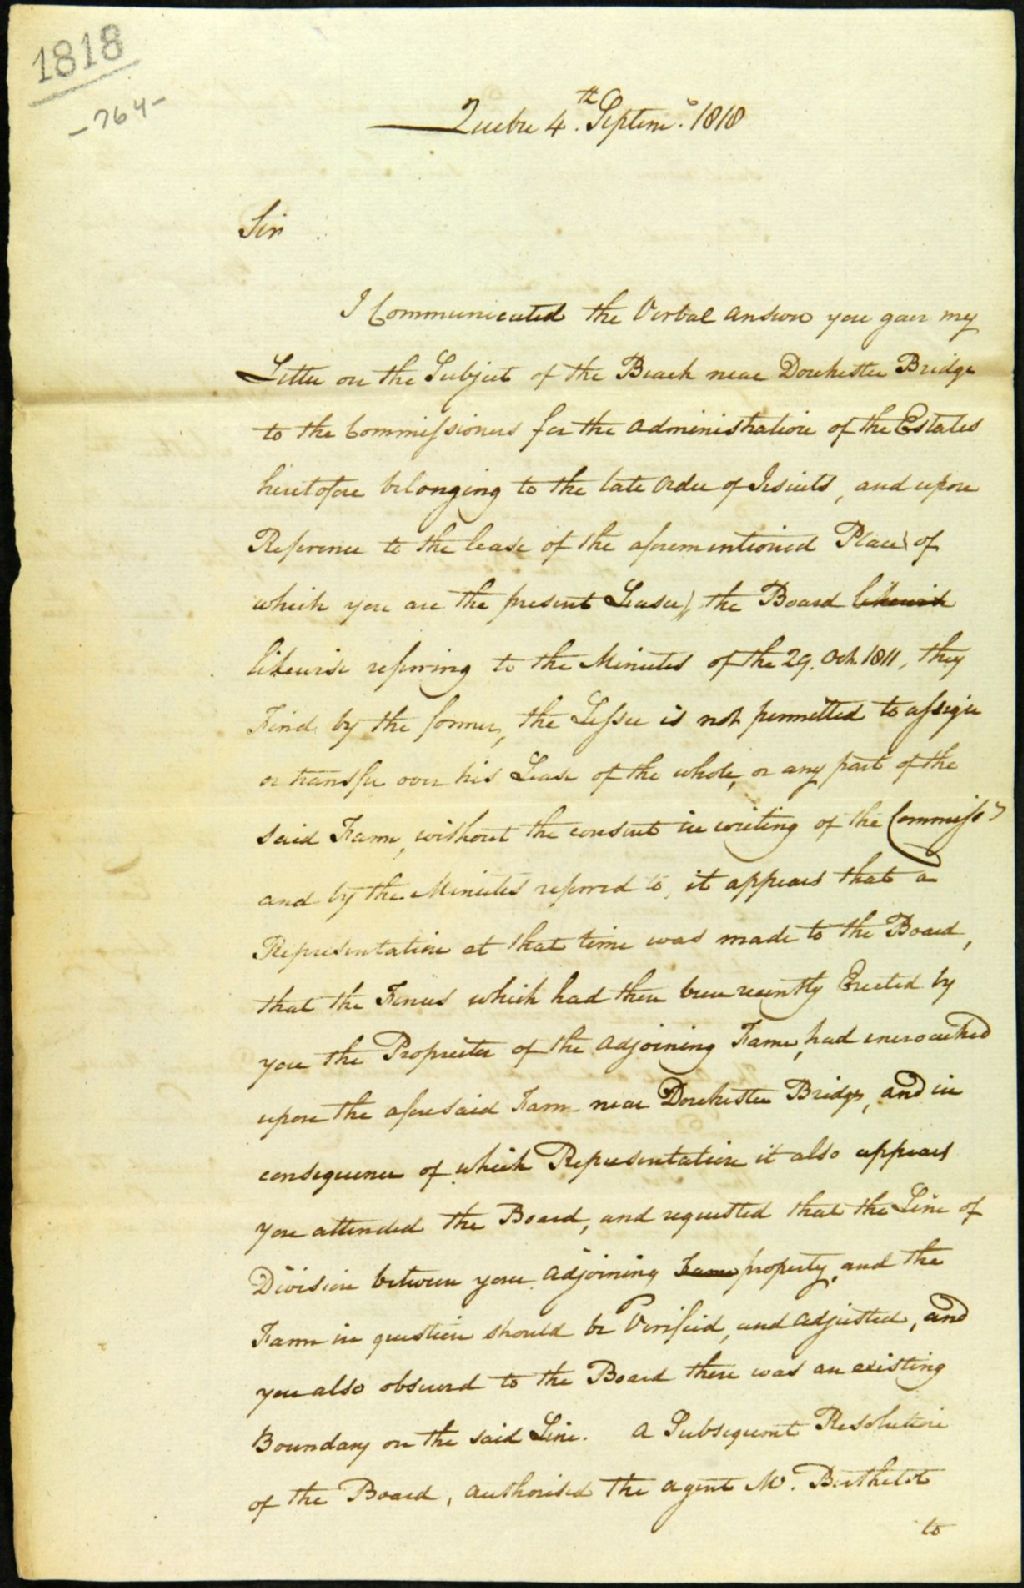 1818
- 764 -
Quebec 4th. Septemr. 1818
Sir
I Communicated the Verbal answer you gave my
Letter on the Subject of the Beach near Dorchester Bridge
to the Commissioners for the administration of the Estates
heretofore belonging to the late order of Jesuits, and upon
Reference to the lease of the aforementioned Place (of
which you are the present Leasee) the Board likewise
likewise referring to the Minutes of the 29. Oct. 1811, they
Find by the former, the Lessee is not permitted to assign
or transfer over his Lease of the whole, or any part of the
said Farm, without the consent in writing of the Commissrs
and by the Minutes referred to, it appears that a
Representation at that time was made to the Board,
that the Fences which had then been recently Erected by
you the Proprietor of the adjoining Farm, had encroached
upon the aforesaid Farm near Dorchester Bridge, and in
consequence of which Representation it also appears
you attended the Board, and requested that the Line of
Division between your adjoining Farm property, and the
Farm in question should be Verified, and adjusted, and
you also observed to the Board there was an existing
Boundary on the said Line. A Subsequent Resolution
of the Board, authorised the agent Mr. Berthelot
to